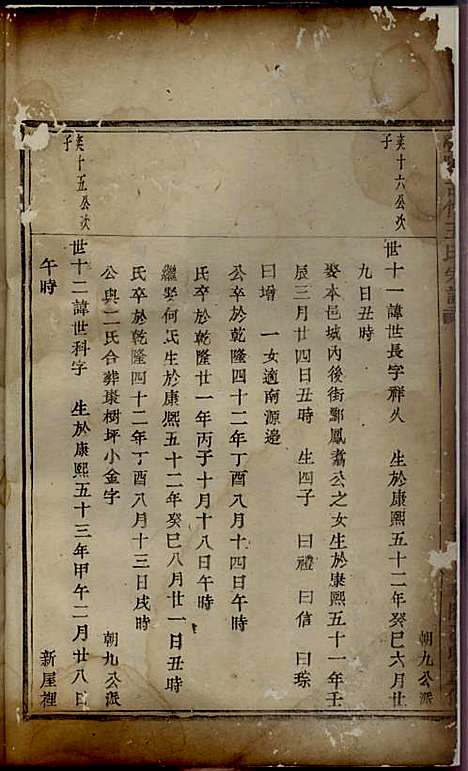 奕十六公次
子
世十一諱世長字祥久 生於康熙五十二年癸巳六月廿 朝九公派
九日丑時
娶本邑城內後街鄢鳳翥公之女生於康熙五十一年壬
辰三月廿四日丑時 生四子 曰禮 曰信 曰琮
曰增 一女適南源邉
公卒於乾隆四十二年丁酉八月十四日午時
氏卒於乾隆廿一年丙子十月十八日午時
繼娶何氏生於康熙五十二年癸巳八月廿一日丑時
氏卒於乾隆四十二年丁酉八月十三日戌時
公與二氏合葬康樹坪小金字 朝九公派
奕十五公次
子
世十二諱世科字 生於康熙五十三年甲午二月廿八日
午時 新屋裡